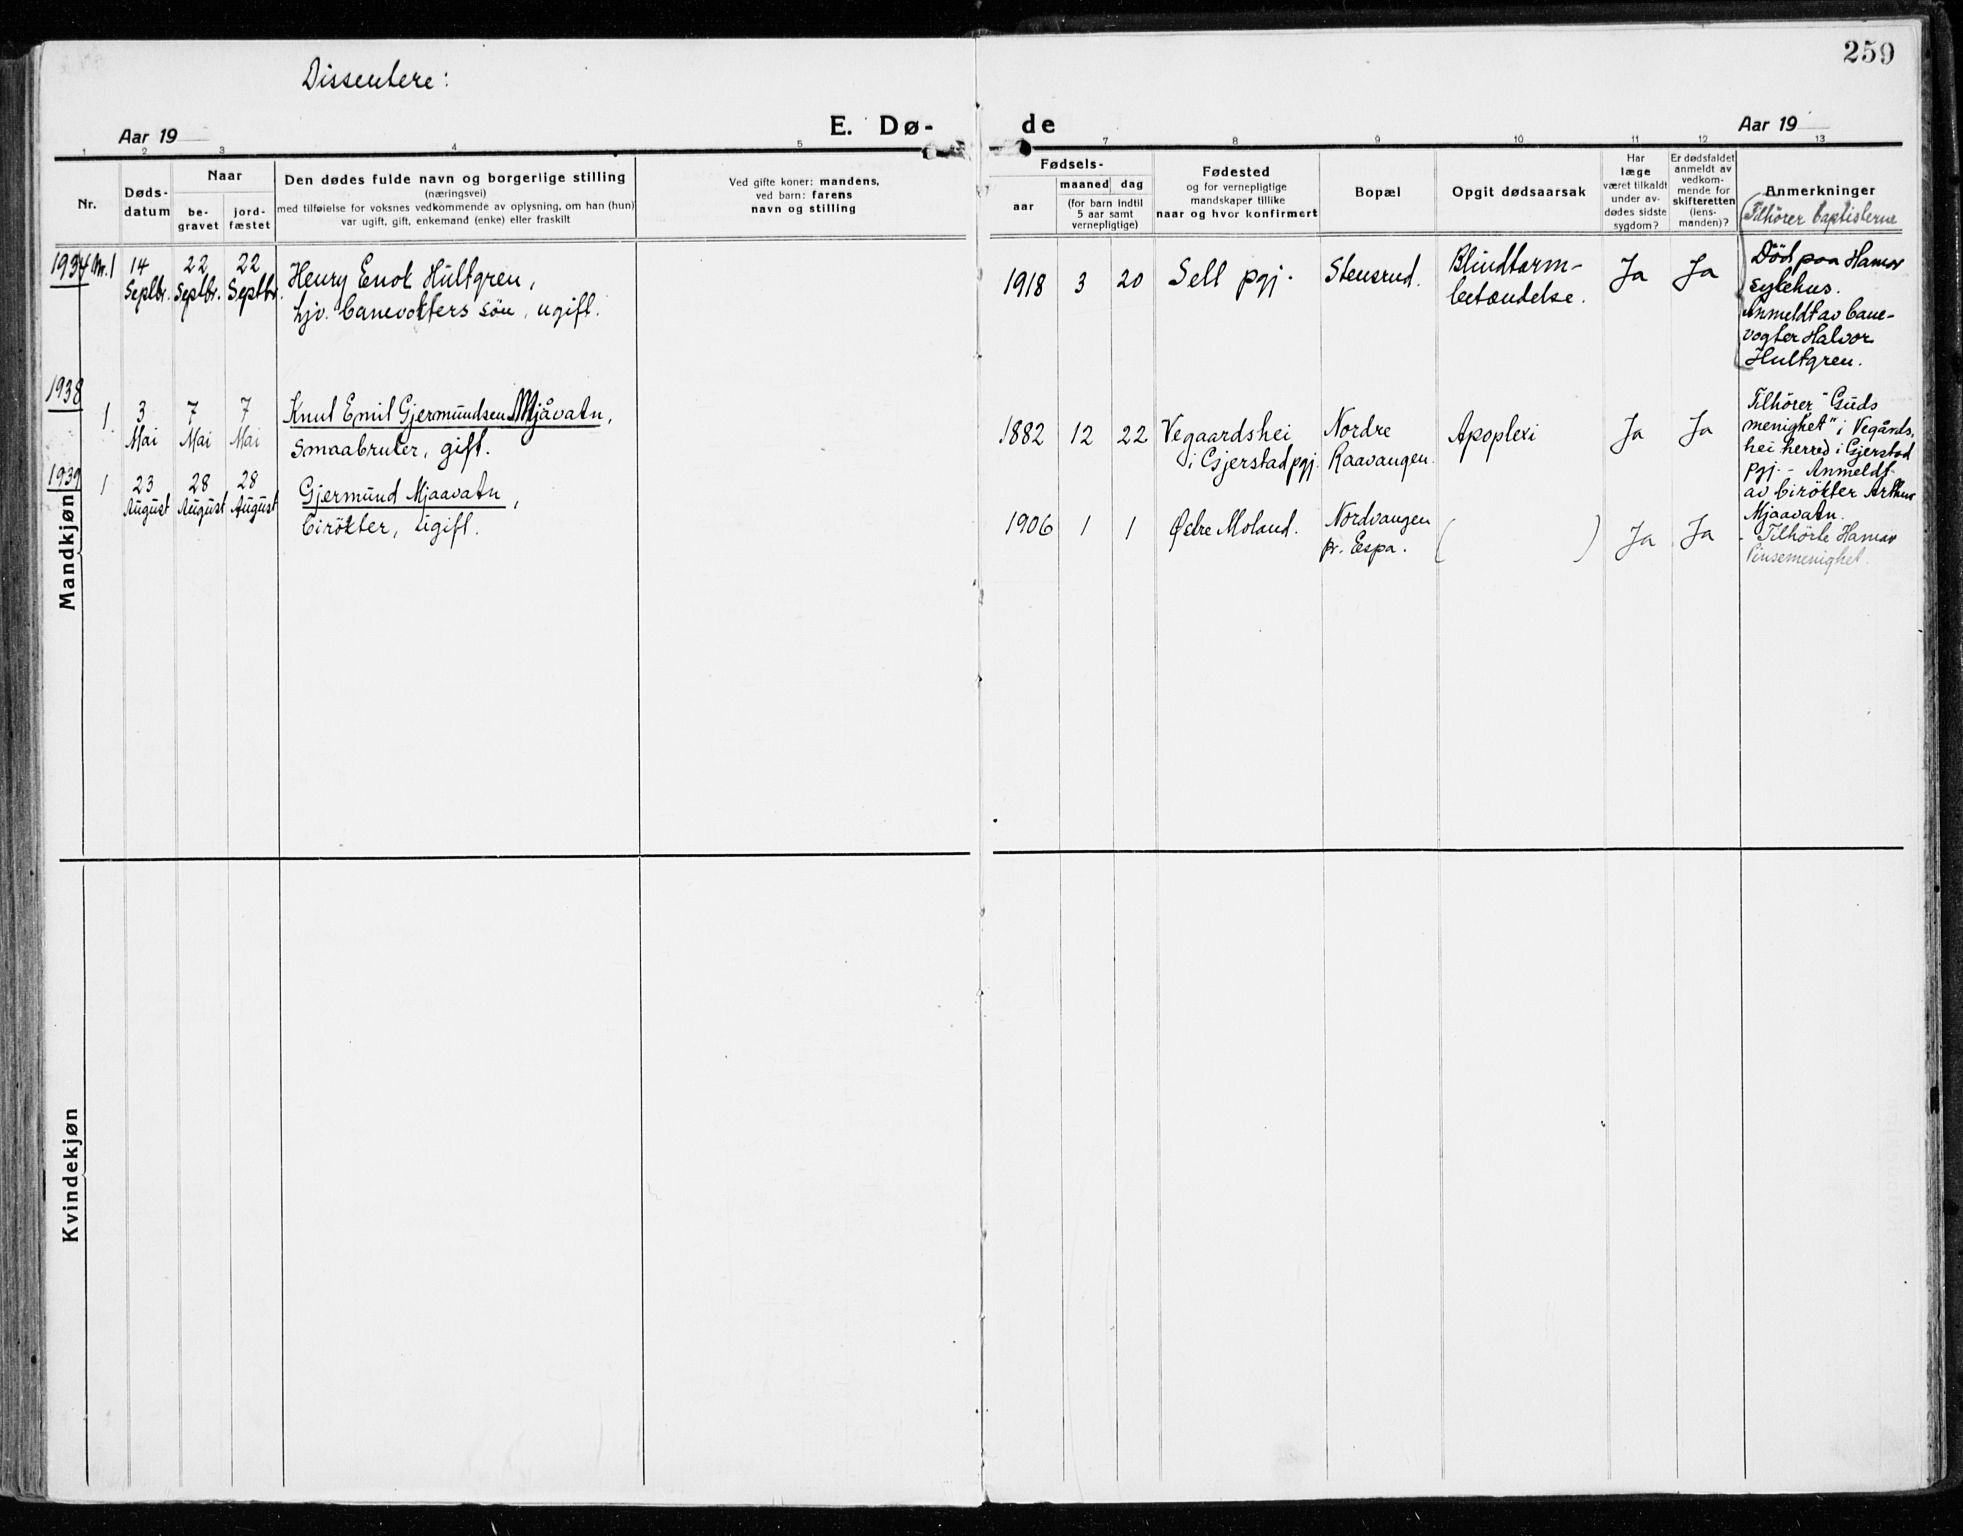 259
Dissentere:
E. Dø- de
Aar 19
Aar 19
1 2 3 4 5 7 8 9 10 11 12 13
Nr.
Døds-
datum
Naar
be-
gravet
jord-
fæstet
Den dødes fulde navn og borgerlige stilling
(næringsvei)
med tilføielse for voksnes vedkommende av oplysning, om han (hun)
var ugift, gift, enkemand (enke) eller fraskilt
Ved gifte koner: mandens,
ved barn: farens
navn og stilling
Fødsels-
aar
maaned dag
(for barn indtil
5 aar samt
vernepligtige)
Fødested
og for vernepligtige
mandskaper tillike
naar og hvor konfirmert
Bopæl
Opgit dødsaarsak
Har
læge
været tilkaldt
under av-
dødes sidste
sygdom?
Er dødsfaldet
anmeldt av
vedkom-
mende for
skifteretten
(lens-
manden)?
Anmerkninger
Tilhører baptisterne
1934 Nr. 1
14
Septbr.
22
Septbr.
22
Septbr.
Henry Enok Hultgren,
hjv. banevokters søn, ugift.
1918 3 20
Sell pgj.
Stensrud.
Blindtarm-
betændelse.
Ja Ja
Død paa Hamar
sykehus.
Anmeldt av bane-
vogter Halvor
Hultgren.
1938
1
3
Mai
7
Mai
7
Mai
Knut Emil Gjermundsen Mjåvatn,
Smaabruker, gift.
1882 12 22
Vegaardshei
i Gjerstad pgj.
Nordre
Kaavangen.
Apoplexi
Ja Ja
Tilhører "Guds
menighet" i Vegårds-
hei herred i Gjerstad
pgj. - Anmeldt
av birøkter Arthur
Mjaavatn.
1939
1
23
August
28
August
28
August
Gjermund Mjaavatn,
birøkter, ugift.
1906 1 1
Østre Moland.
Nordvangen
pr. Espa.
( )
Ja Ja
- Tilhørte Hamar
Pinsemenighet.
Mandkjøn
Kvindekjøn